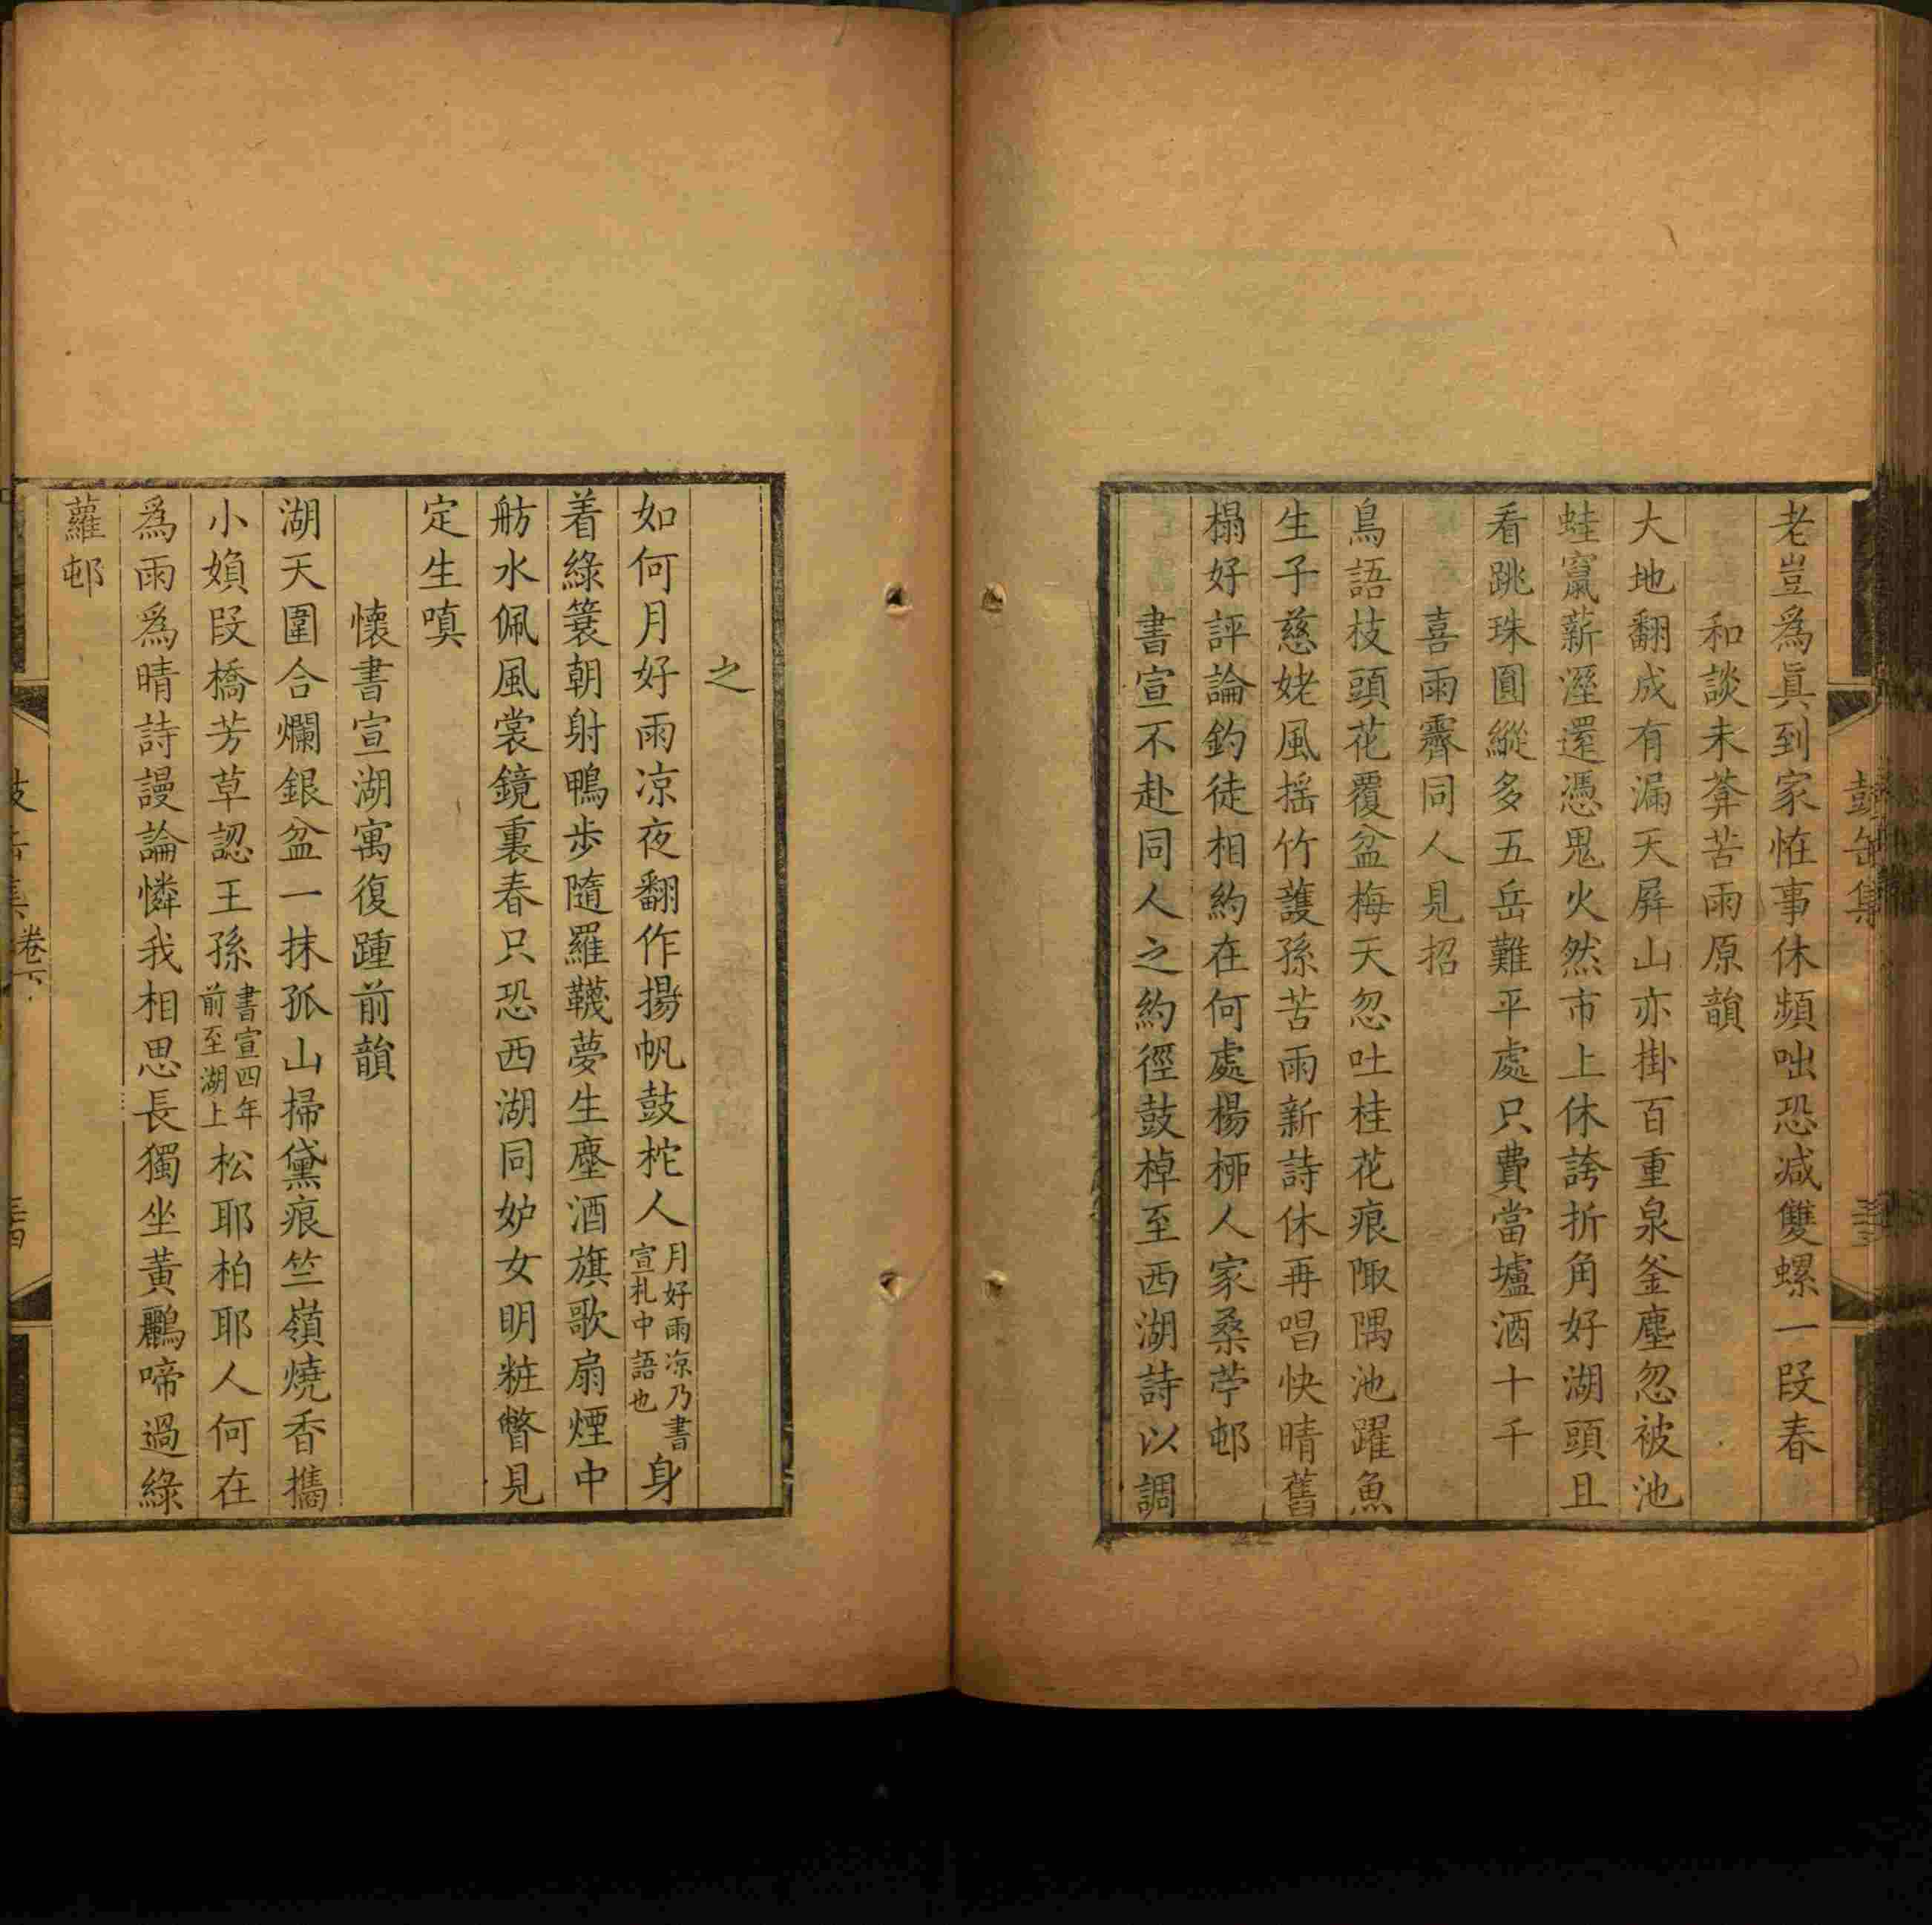 鼓缶集
老豈爲眞到家恠事休頻咄恐減雙螺一段春
和談未莾苦雨原韻
大地翻成有漏天屛山亦掛百重泉釜塵忽被池
蛙竄薪溼還憑鬼火然市上休誇折角好湖頭且
看跳珠圓縱多五岳難平處只費當壚酒十千
喜雨霽同人見招
鳥語枝頭花覆盆梅天忽吐桂花痕陬隅池躍魚
生子慈姥風揺竹護孫苦雨新詩休再唱快晴舊
榻好評論釣徒相約在何處楊柳人家桑苧邨
書宣不赴同人之約徑鼓棹至西湖詩以調
之
如何月好雨凉夜翻作揚帆鼓柁人月好雨凉乃書宣札中語也身
着綠簑朝射鴨步隨羅韈夢生塵酒旗歌扇煙中
舫水佩風裳鏡裏春只恐西湖同妒女明粧瞥見
定生嗔
懷書宣湖寓復踵前韻
湖天圍合爛銀盆一抹孤山掃黛痕竺嶺燒香攜
小媍段橋芳草認王孫書宣四年前至湖上松耶柏耶人何在
爲雨爲晴詩謾論憐我相思長獨坐黃鸝啼過綠
蘿邨
卷六